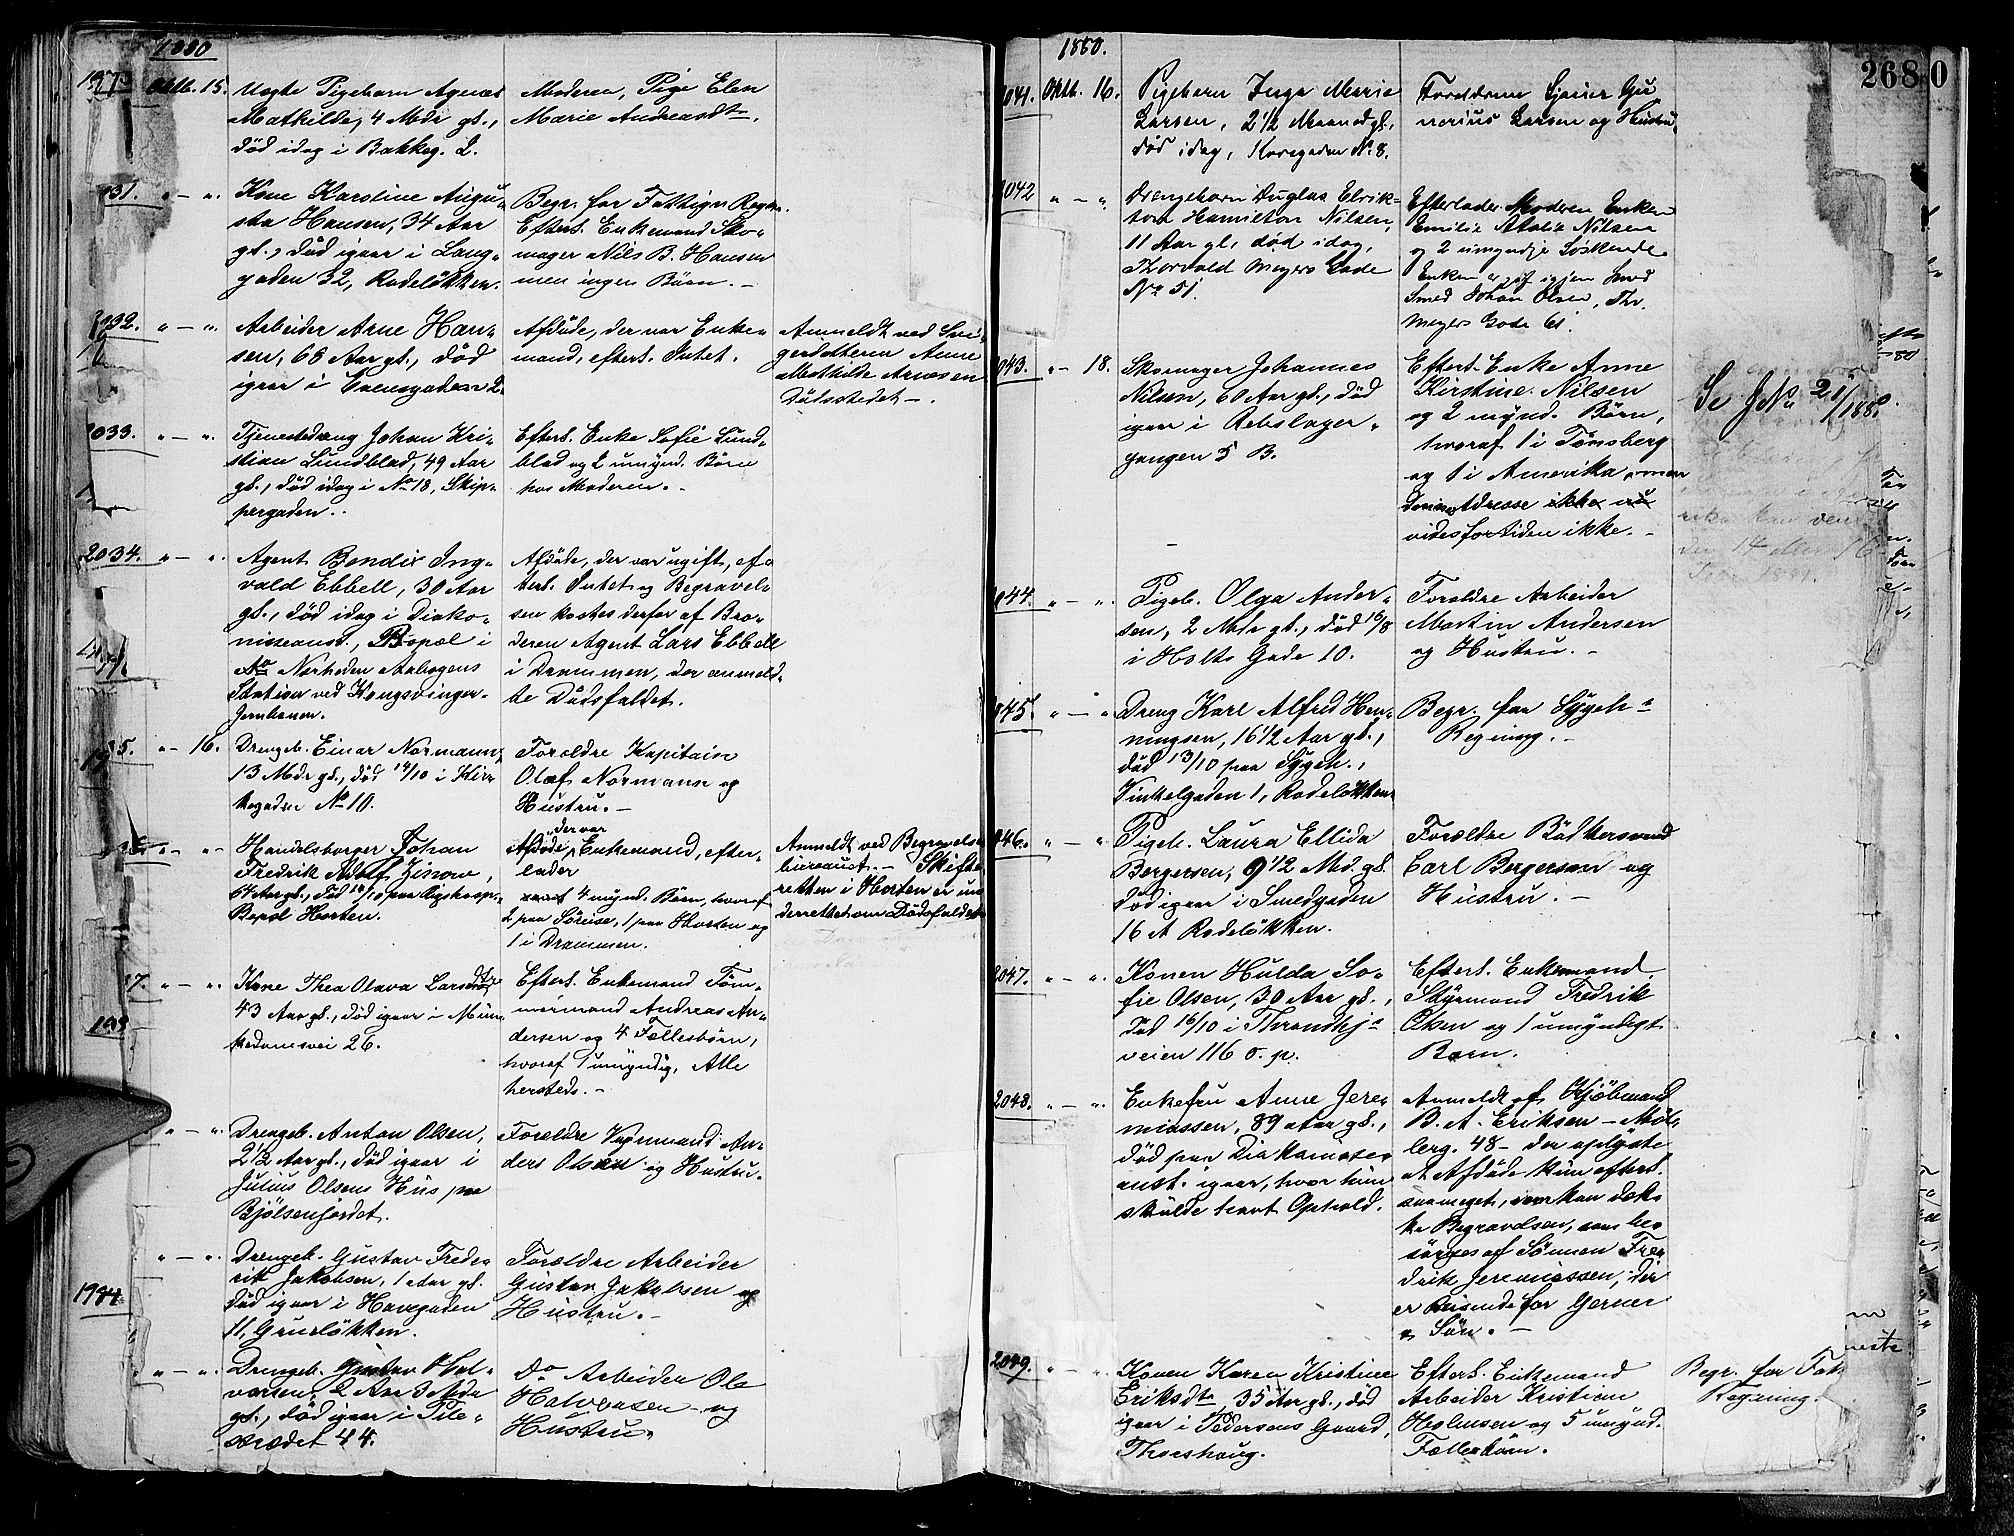 1880
Oktb. 15.
Uægte Pigebarn Agnes
Mathilde, 4 Mdr gl.,
død idag i Bakkeg. 2.
Moderen, Pige Elen
Marie Andreasdtr.
31. " — "
Kone Karoline Augu-
sta Hansen, 34 Aar
gl., død igaar i Lang-
gaden 32, Rodeløkken.
Begr. for Fattigv. Regn.
Efterl. Enkemand Sko-
mager Nils B. Hansen
men ingen Børn. —
2032. " — "
Arbeider Arne Han-
sen, 68 Aar gl., død
igaar i Evensgaden 2.
Afdøde, der var Enke-
mand, efterl. Intet.
Anmeldt ved Svi-
gerdatteren Anne
Mathilde Arnesen
Dødsstedet —.
2033. " — "
Tjenestedreng Johan Kri-
stian Lundblad, 49 Aar
gl., død idag i No 18, Skip-
pergaden.
Efterl. Enke Sofie Lund-
blad og 2 umynd. Børn
hos Moderen. —
2034. " — "
Agent Bendix Ing-
vald Ebbell, 30 Aar
gl., død idag i Diako-
nisseanst., Bopæl i
Nørheden Aabogens
Station ved Kongsvinger-
Jernbanen.
Afdøde, der var ugift, ef-
terl. Intet og Begravel-
sen kostes derfor af Bro-
deren Agent Lars Ebbell
i Drammen, der anmeld-
te Dødsfaldet.
35. " — 16.
Drengeb. Einar Normann,
13 Mdr gl., død 14/10 i Kir-
kegaden No 10.
Forældre Kapitain
Olaf Normann og
Hustru. —
" — "
Handelsborger Johan
Fredrik Adolf Zinow,
64 Aar gl., død 14/10 paa Rigshosp.
Bopæl Horten.
der var
Afdøde, Enkemand, efter-
lader
4 mynd. Børn, hvoraf
2 paa Søreise, 1 paa Horten og
1 i Drammen.
Anmeldt ved Begravelses-
bureauet. — Skifte-
retten i Horten er un-
derrettet om Dødsfaldet
37. " — "
Kone Thea Olava Larsdtr
43 Aar gl., død igaar i Mun-
kedamsvei 26.
Efterl. Enkemand Tøm-
mermand Andreas An-
dersen og 4 Fællesbørn,
hvoraf 1 umyndig, Alle
hersteds. —
" — "
Drengeb. Anton Olsen,
2 1/2 Aar gl., død igaar i
Julius Olsens Hus paa
Bjølsenjordet.
Forældre Vognmand An-
ders Olsen og Hustru.
" — "
Drengeb. Gustav Frede-
rik Jakobsen, 1 Aar gl.
død igaar i Havegaden
11, Grünløkken.
Forældre Arbeider
Gustav Jakobsen og
Hustru. —
" — "
Drengeb. Gustav Hal-
vorsen, 2 Aar 3 Mdr
gl., død igaar i Pile-
strædet 44.
Do Arbeider Ole
Halvorsen og
Hustru.
1984
1880.
268 0
2041. Oktb. 16.
Pigebarn Inga Marie
Larsen, 2 1/2 Maaned gl.,
død idag, Korsgaden No 8.
Forældrene Gju
nerius Larsen og Hustru.
2042 " — "
Drengebarn Duglas Elrik-
ton Hamilton Nilsen,
11 Aar gl, død idag,
Thorvald Meyers Gade
No 51.
Efterlader Modren Enken
Emilie Atalie Nilsen
og 2 umyndje Søskende.
Enken er gift igjen med
Smed Johan Olsen, Thv.
Meyers Gade 61.
2043. " — 18.
Skomager Johannes
Nilsen, 60 Aar gl., død
igaar i Rebslager-
gangen 5 B.
Efterl. Enke Anne
Kirstine Nilsen
og 2 mynd. Børn,
hvoraf 1 i Tønsberg
og 1 i Amerika, men
dennes Adresse ikke nu
vides for tiden ikke. —
Se J No 21/1880.
2044. " — "
Pigeb. Olga Ander-
sen, 2 Mdr gl., død 16/8
i Holts Gade 10.
Forældre Arbeider
Martin Andersen
og Hustru. —
2045. " — "
Dreng Karl Alfred Hen-
ningsen, 16 1/2 Aar gl.,
død 13/10 paa Sygeh.,
Vinkelgaden 1, Rodeløkken
Begr. for Sygehs
Regning. —
2046. " — "
Pigeb. Laura Ellida
Bergersen, 9 1/2 Md. gl.
død igaar i Smedgaden
16 A Rodeløkken.
Forældre Bødkersvend
Carl Bergersen og
Hustru. —
2047. " — "
Konen Hulda So-
fie Olsen, 30 Aar gl.,
død 16/10 i Throndhj-
veien 116 o. p.
Efterl. Enkemand
Styrmand Fredrik
Olsen og 1 umyndigt
Barn.
2048. " — "
Enkefru Anne Jere-
miassen, 89 Aar gl.,
død paa Diakonisse-
anst. igaar, hvor hun
skulde havt Ophold.
Anmeldt af Kjøbmand
B. A. Eriksen — Møl-
lerg. 48 — der oplyste
at Afdøde kun efterl.
saameget, som kan dæk-
ke Begravelsen, som be-
sørges af Sønnen Fre-
drik Jeremiassen, der
er Reisende for Gerner
& Søn. —
2049. " — "
Konen Karen Kristine
Eriksdtr, 35 Aar gl., død
igaar i Pedersens Gaard,
Thorshaug.
Efterl. Enkemand
Arbeider Kristian
og 5 umynd.
Fællesbørn.
Begr. for Fat
Regning.